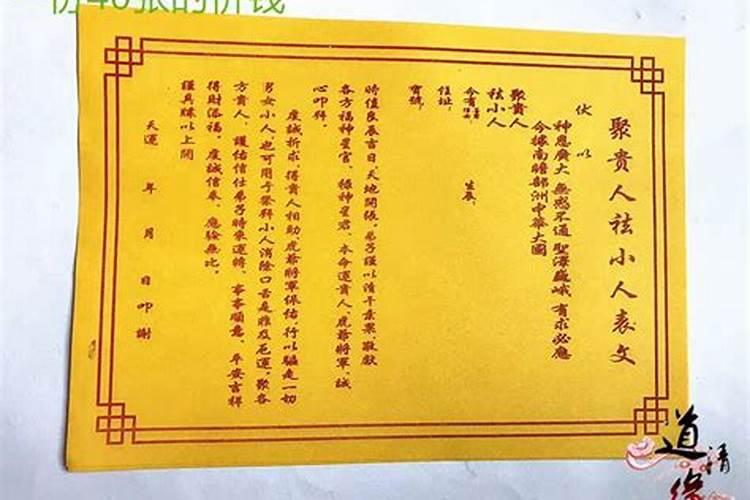 一份40张的价钱
聚貴人祛小人表文
伏以
神恩廣大 無感不通 聖澤盛峨 有求必應
今據南瞻部洲中華大國
聚貴人
祛小人
今有
住址:
生辰:
寶號:
時值良辰吉日,天地開張,弟子謹以清干素果敬獻
各方福神星官、祿神星君、本命運貴人、虎爺將軍,誠
心叩拜。
虔誠祈求,得貴人相助虎爺將軍保佑 行以驅走一切
男女小人,也可用于祭拜小人消除口舌是非及厄運,聚各
方貴人,護佑信仕弟子時來運轉、事事順意、平安吉祥
得財添福,虔誠信奉,應驗無比。
謹具牒以上聞
天運 年 月 日叩謝
道
清
缘